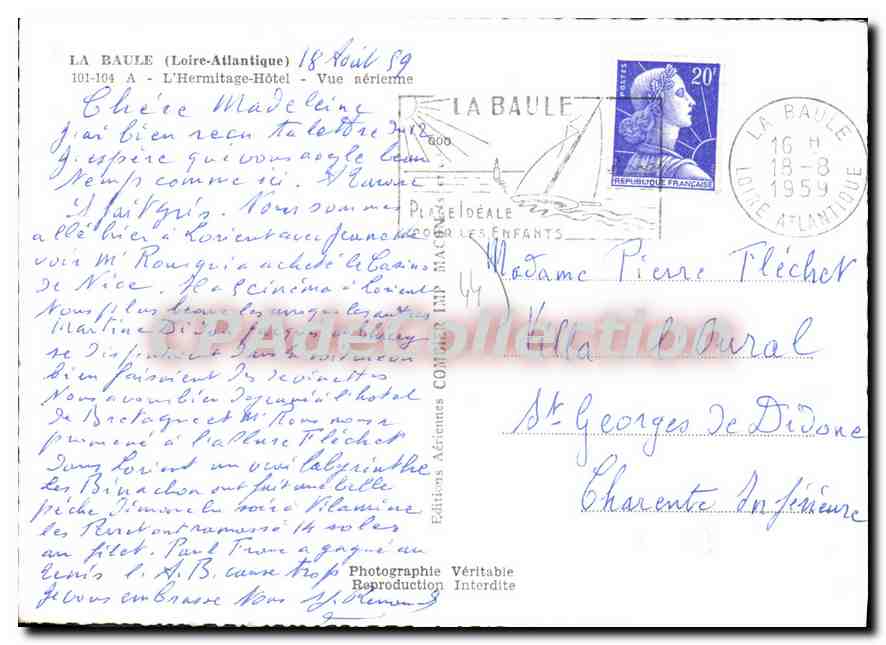 LA BAULE (Loire-Atlantique) 18 Août 59
101-104 A - L'Hermitage-Hôtel - Vue aérienne
Chère Madeleine
J'ai bien reçu ta lettre du 12
J'espère que vous avez le beau
temps comme ici.
Nous sommes
allé hier à Lorient avec Jeanne
voir Mr Rous qui a acheté le Casino
de Nice. Il a 5 cinéma à Lorient
Nous plus beaux les uns que les autres
Martine Didon Jacques
se disputent dans
bien faisaient des devinettes
Nous avons bien déjeuné à l'hotel
de Bretagne et Mr Rous nous
promené à l'allure Fléchet
Dans Lorient un vrai labyrinthe
Les Binachon ont fait une belle
pêche Dimanche soir à Vilamine
les ont ramassé 14 soles
au filet. Paul Franc a gagné au
tenis l. A.B. cause trop
Je vous embrasse Nous
Editions Aériennes COMBIER IMP MACON
Photographie Véritable
Reproduction Interdite
LA BAULE
PLAGE IDÉALE
POUR LES ENFANTS
44
POSTES
20F
REPUBLIQUE FRANÇAISE
LA BAULE
16 H
18-8
1959
LOIRE ATLANTIQUE
Madame Pierre Fléchet
Villa le Oural
St Georges de Didone
Charente Inférieure
CPAdeCollection